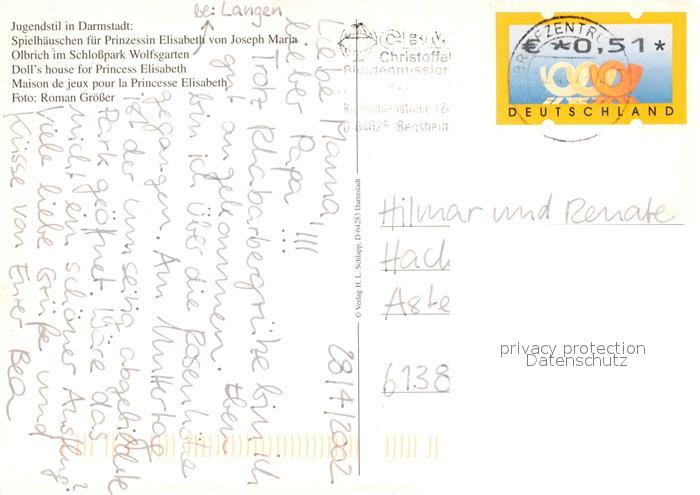 Jugendstil in Darmstadt:
Spielhäuschen für Prinzessin Elisabeth von Joseph Maria
Olbrich im Schloßpark Wolfsgarten
Doll's house for Princess Elisabeth
Maison de jeux pour la Princesse Elisabeth
Foto: Roman Größer
bei Langen
28/4/2002
Liebe Mama!!!
Lieber Papa!!!
Trotz Rhabarbergrütze bin ich
gut angekommen. Eben
bin ich über die Rosenhöhe
gegangen. Am Muttertag
ist der umseitig abgebildete
Park geöffnet. Wäre das
nicht ein schöner Ausflug?
Viele liebe Grüße und
Küsse von Eurer Bea
© Verlag H. L. Schlapp, D-64283 Darmstadt
Christoffel
Blindenmission
Nibelungenstraße 124
D-64625 Bensheim
BRIEFZENTRUM
€ *0,51*
DEUTSCHLAND
Hilmar und Renate
Hach
Aste
6138
privacy protection
Datenschutz